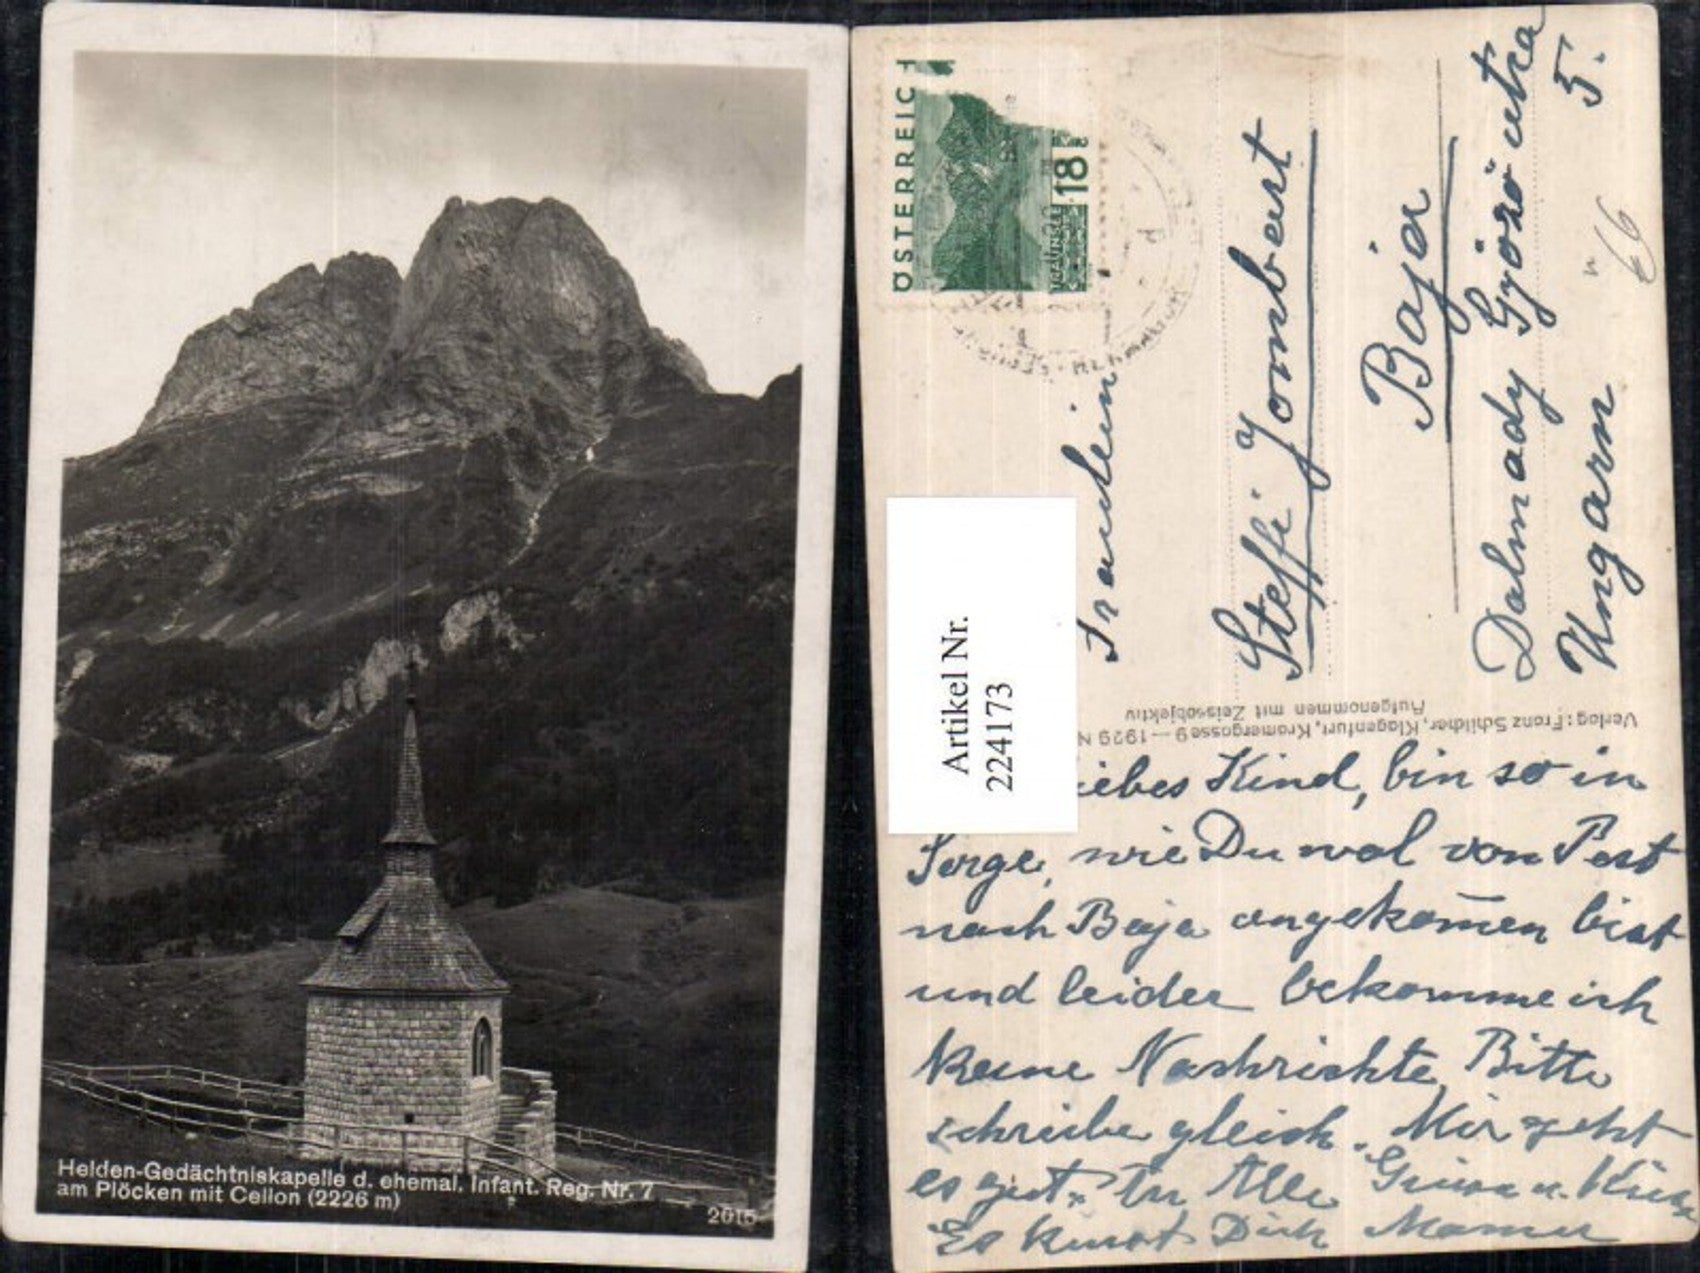 Helden-Gedächtniskapelle d. ehemal. Infant. Reg. Nr. 7
am Plöcken mit Cellon (2226 m)
2015
ÖSTERREICH
18
TRAUNSEE
Artikel Nr.
2241173
Fraulein
Steffi Jombart
Baja
Dalmady Győző utca
5.
Ungarn
66
Verlag: Franz Schilcher, Klagenfurt, Kramergasse 9 — 1929 N
Aufgenommen mit Zeissobjektiv
iebes Kind, bin so in
Sorge, wie Du wol von Pest
nach Baja angekom̄en bist
und leider bekomme ich
keine Nachrichte, Bitte
schreibe gleich. Mir geht
es gut. An Alle Grüsse u. Küsse
Es küsst Dich Mama